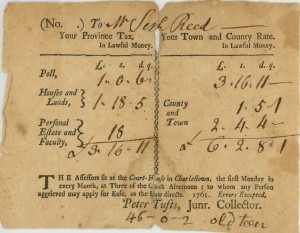 (No. .) To Mr Seth Reed
Your Province Tax, Your Town and County Rate.
In Lawful Money. In Lawful Money.
£. s. d. q. £. s. d. q.
Poll, 1-0-6 3-16-11
Houses and Lands, } 1-18-5 County 1-5-1
Personal Estate and Faculty, } 18 and Town } 2-4-4
£ 3-16-11 £ 6-2-8-1
THE Assessors sit at the Court-House in Charlestown, the first Monday in
every Month, at Three of the Clock Afternoon; to whom any Person
aggrieved may apply for Ease, as the Law directs. 1761. Errors Excepted,
Peter Tufts, Junr. Collector.
46-0-2 old ten